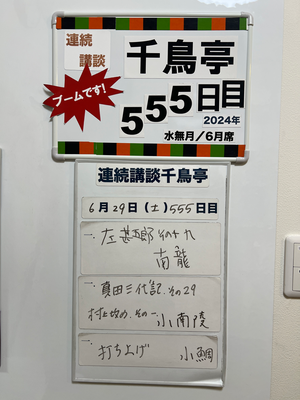 連続
講談
千鳥亭
ブームです!
555日目
2024年
水無月／6月席
連続講談千鳥亭
6月29日(土)555日目
一、左甚五郎 その十九
南龍
一、真田三代記、その29
村上攻め、その一 小南陵
一、打ち上げ 小鯛